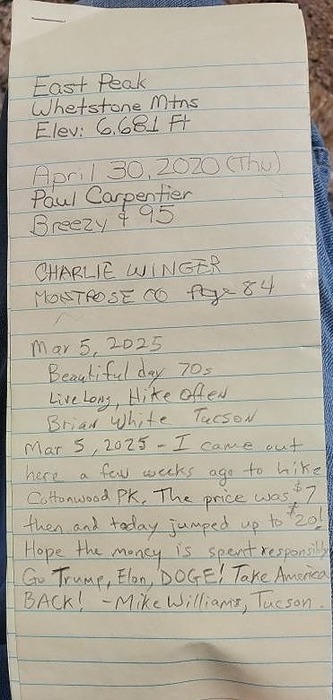 East Peak
Whetstone Mtns
Elev: 6,681 Ft
April 30, 2020 (Thu)
Paul Carpentier
Breezy & 95
CHARLIE WINGER
MONTROSE CO Age 84
Mar 5, 2025
Beautiful day 70s
Live Long, Hike Often
Brian White Tucson
Mar 5, 2025 - I came out
here a few weeks ago to hike
Cottonwood PK. The price was $7
then and today jumped up to $20!
Hope the money is spent responsibly
Go Trump, Elon, DOGE! Take America
BACK! - Mike Williams, Tucson.